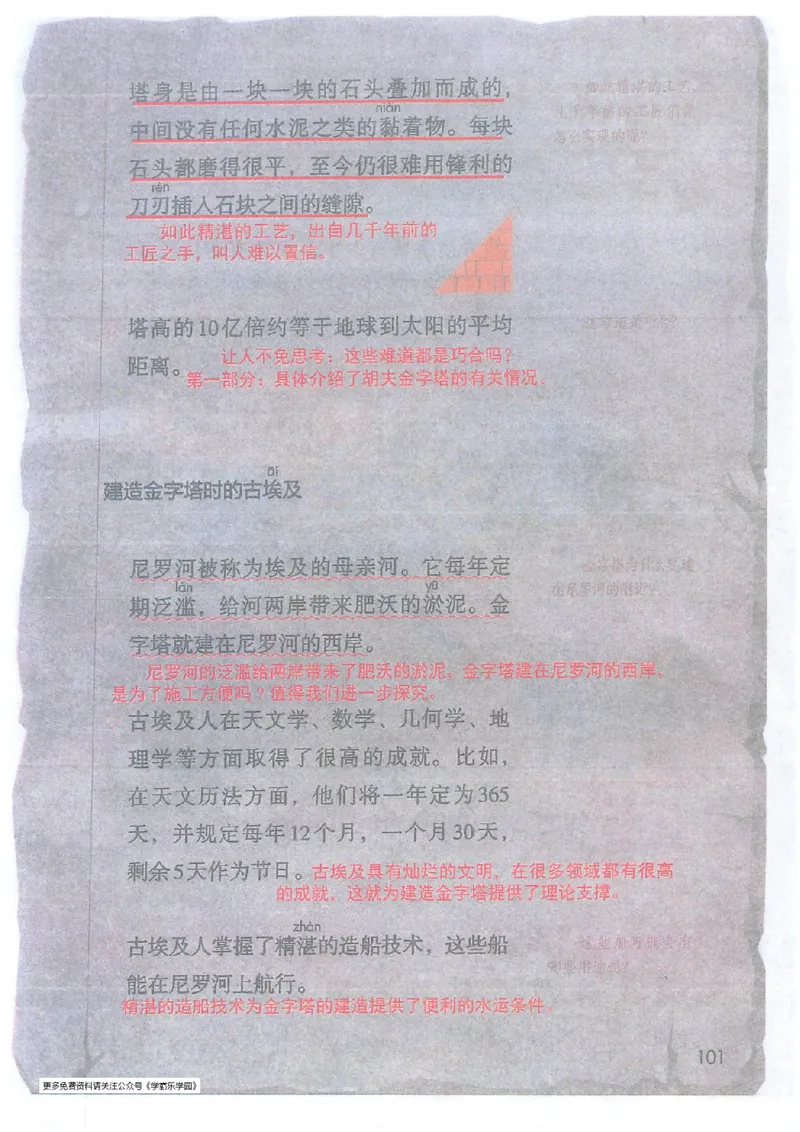 塔身是由一块一块的石头叠加而成的，
niàn
中间没有任何水泥之类的黏着物。每块
石头都磨得很平，至今仍很难用锋利的
rèn
刀刃插入石块之间的缝隙。
如此精湛的工艺，出自几千年前的
工匠之手，叫人难以置信。
如此精湛的工艺，
几千年前的工匠们是
怎么实现的呢？
塔高的10亿倍约等于地球到太阳的平均
距离。
让人不免思考：这些难道都是巧合吗？
第一部分：具体介绍了胡夫金字塔的有关情况。
āi
建造金字塔时的古埃及
尼罗河被称为埃及的母亲河。它每年定
làn yū
期泛滥，给河两岸带来肥沃的淤泥。金
字塔就建在尼罗河的西岸。
金字塔为什么要建
在尼罗河的附近？
尼罗河的泛滥给两岸带来了肥沃的淤泥。金字塔建在尼罗河的西岸，
是为了施工方便吗？值得我们进一步探究。
古埃及人在天文学、数学、几何学、地
理学等方面取得了很高的成就。比如，
在天文历法方面，他们将一年定为365
天，并规定每年12个月，一个月30天，
剩余5天作为节日。
古埃及具有灿烂的文明，在很多领域都有很高
的成就，这就为建造金字塔提供了理论支撑。
zhàn
古埃及人掌握了精湛的造船技术，这些船
能在尼罗河上航行。
精湛的造船技术为金字塔的建造提供了便利的水运条件。
101
更多免费资料请关注公众号《学霸乐学园》